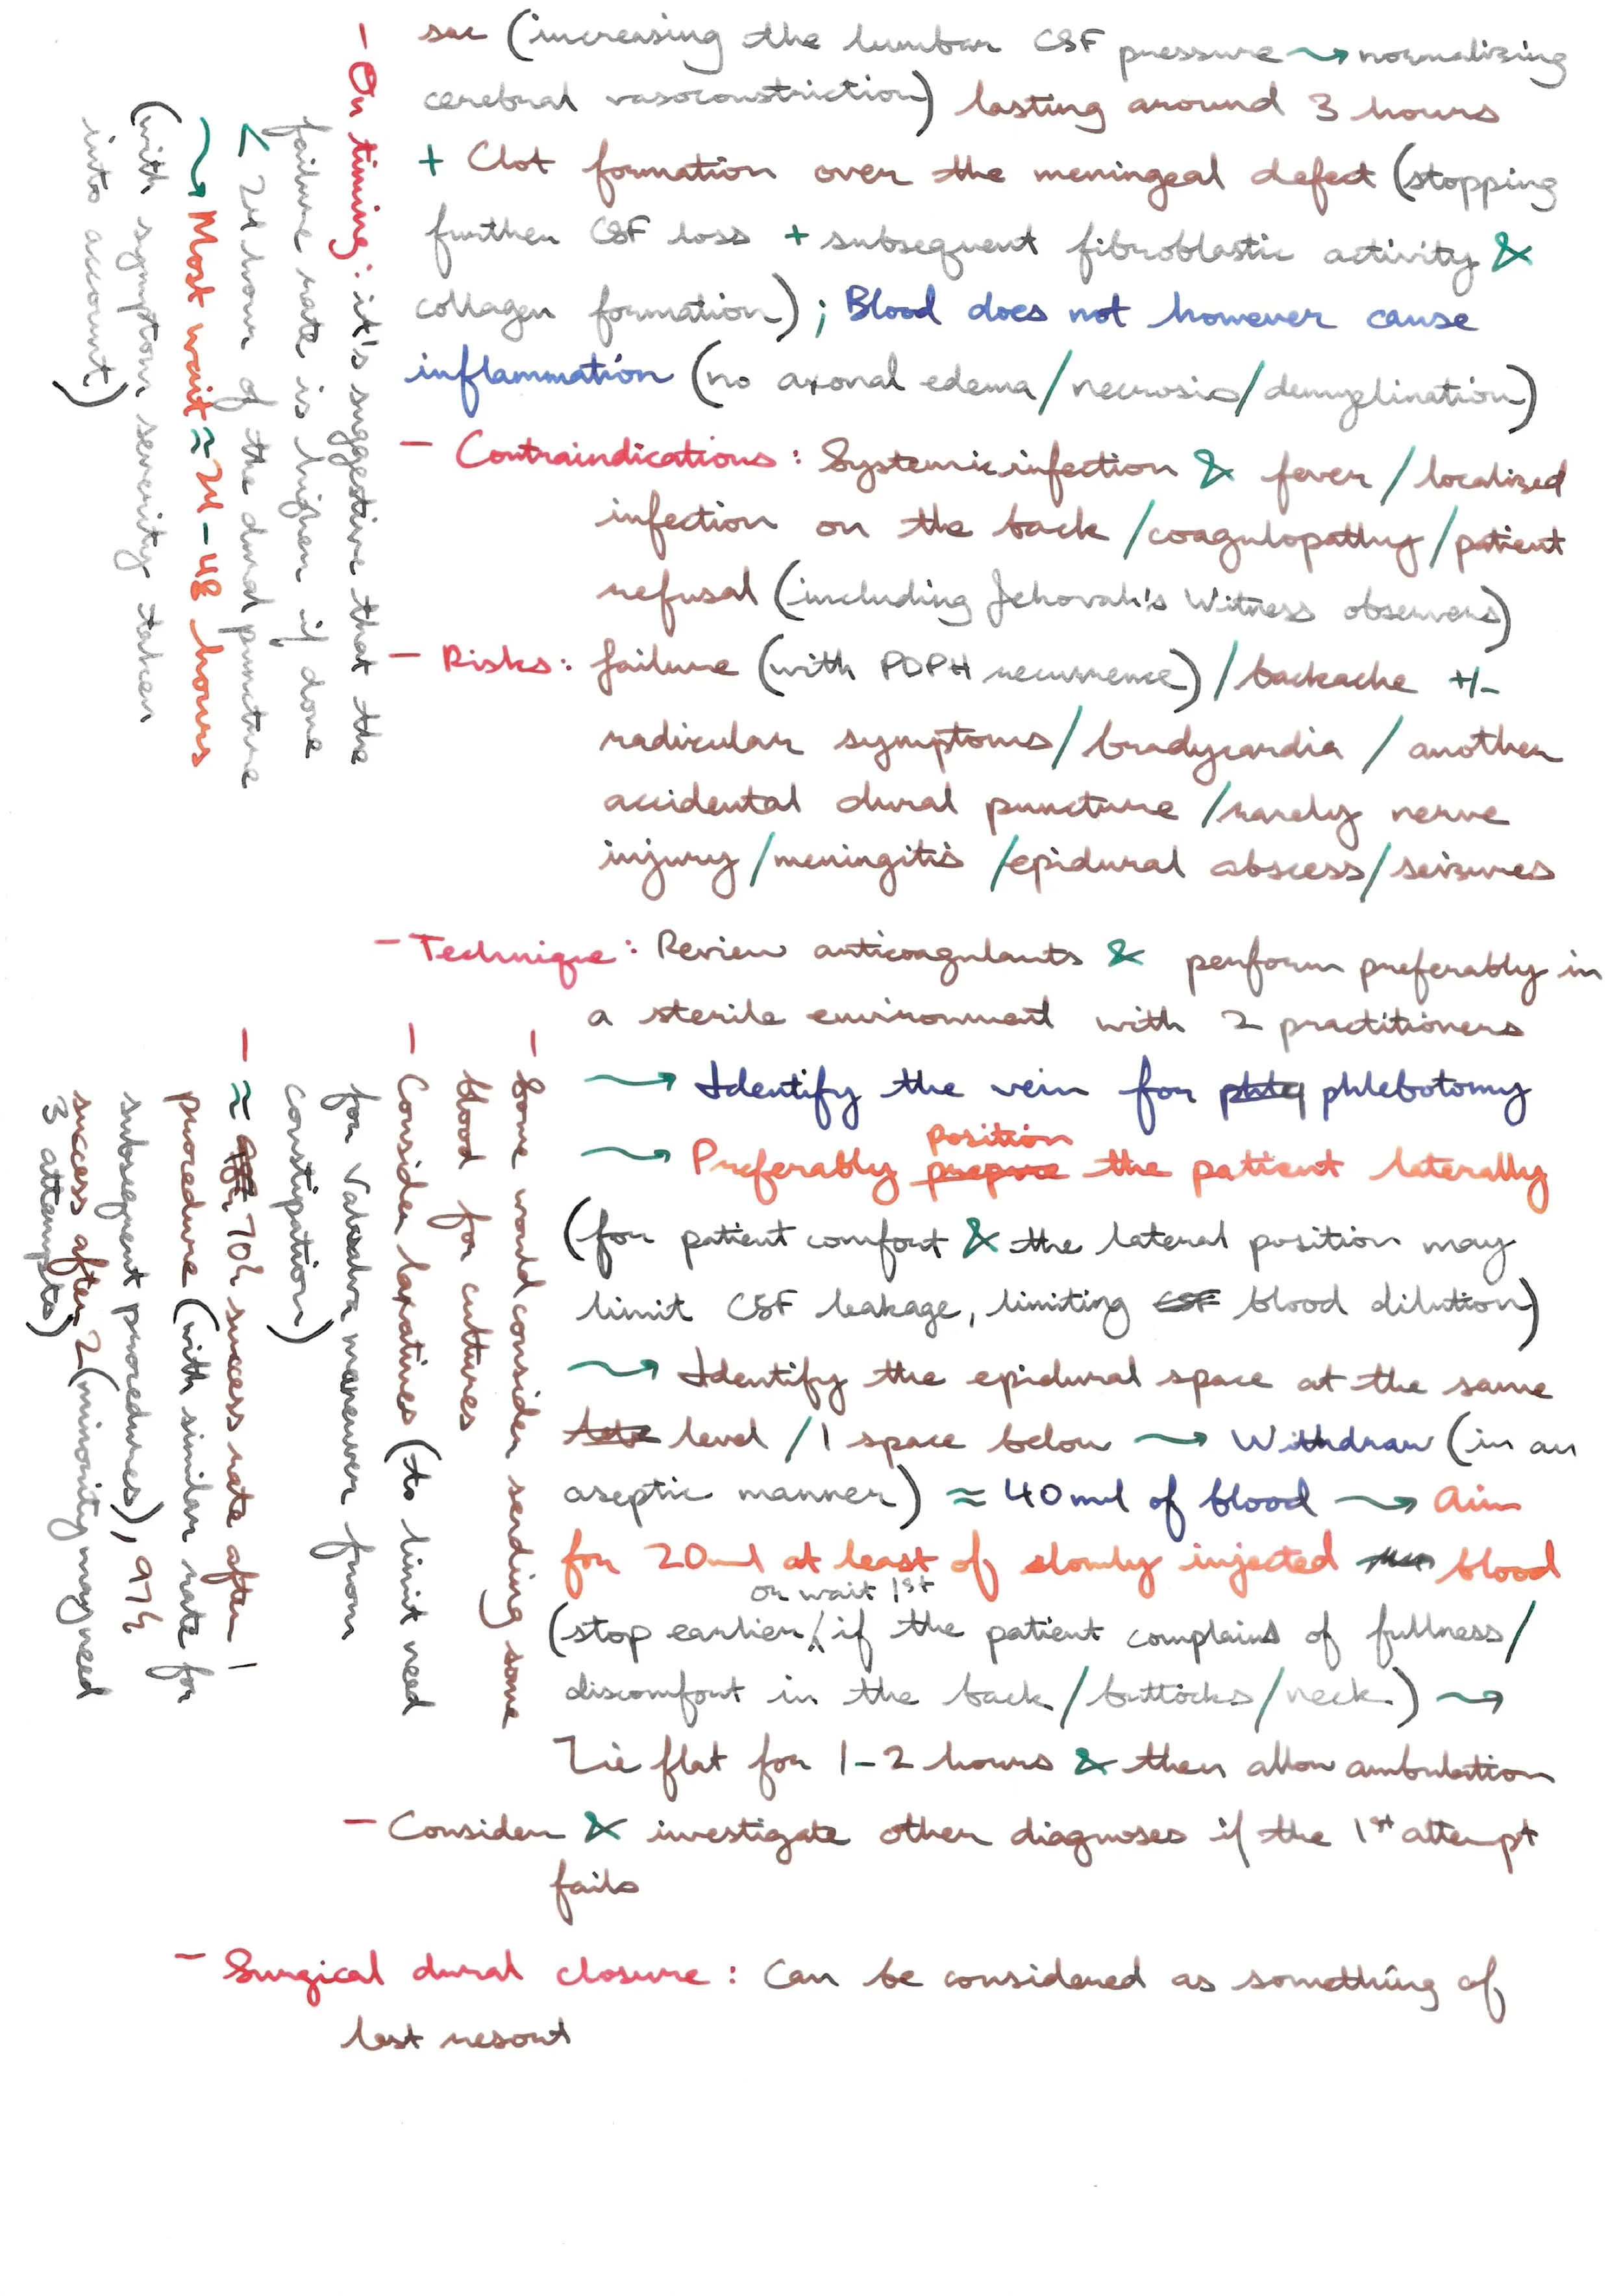 sac (increasing the lumbar CSF pressure → normalizing
cerebral vasoconstriction) lasting around 3 hours
+ Clot formation over the meningeal defect (stopping
further CSF loss + subsequent fibroblastic activity &
collagen formation) ; Blood does not however cause
inflammation (no axonal edema/necrosis/demyelination)
- On timing: it's suggestive that the
failure rate is higher if done
< 24 hour of the dural puncture
→ Most wait ≈ 24 - 48 hours
(with symptom severity taken
into account)
- Contraindications: Systemic infection & fever / localized
infection on the back / coagulopathy / patient
refusal (including Jehovah's Witness observers)
- Risks: failure (with PDPH recurrence) / backache +/-
radicular symptoms / bradycardia / another
accidental dural puncture / rarely nerve
injury / meningitis / epidural abscess / seizures
- Technique: Review anticoagulants & perform preferably in
a sterile environment with 2 practitioners
→ Identify the vein for phlebotomy
→ Preferably position the patient laterally
(for patient comfort & the lateral position may
limit CSF leakage, limiting blood dilution)
→ Identify the epidural space at the same
level / 1 space below → Withdraw (in an
aseptic manner) ≈ 40 ml of blood → Aim
for 20ml at least of slowly injected blood
(stop earlier / or wait 1st if the patient complains of fullness /
discomfort in the back / buttocks / neck) →
Lie flat for 1-2 hours & then allow ambulation
- Some would consider sending some
blood for cultures
- Consider laxatives (to limit need
for Valsalva maneuver from
constipation)
- ≈ 70% success rate after 1
procedure (with similar rate for
subsequent procedures), 97%
success after 2 (minority may need
3 attempts)
- Consider & investigate other diagnoses if the 1st attempt
fails
- Surgical dural closure: Can be considered as something of
last resort